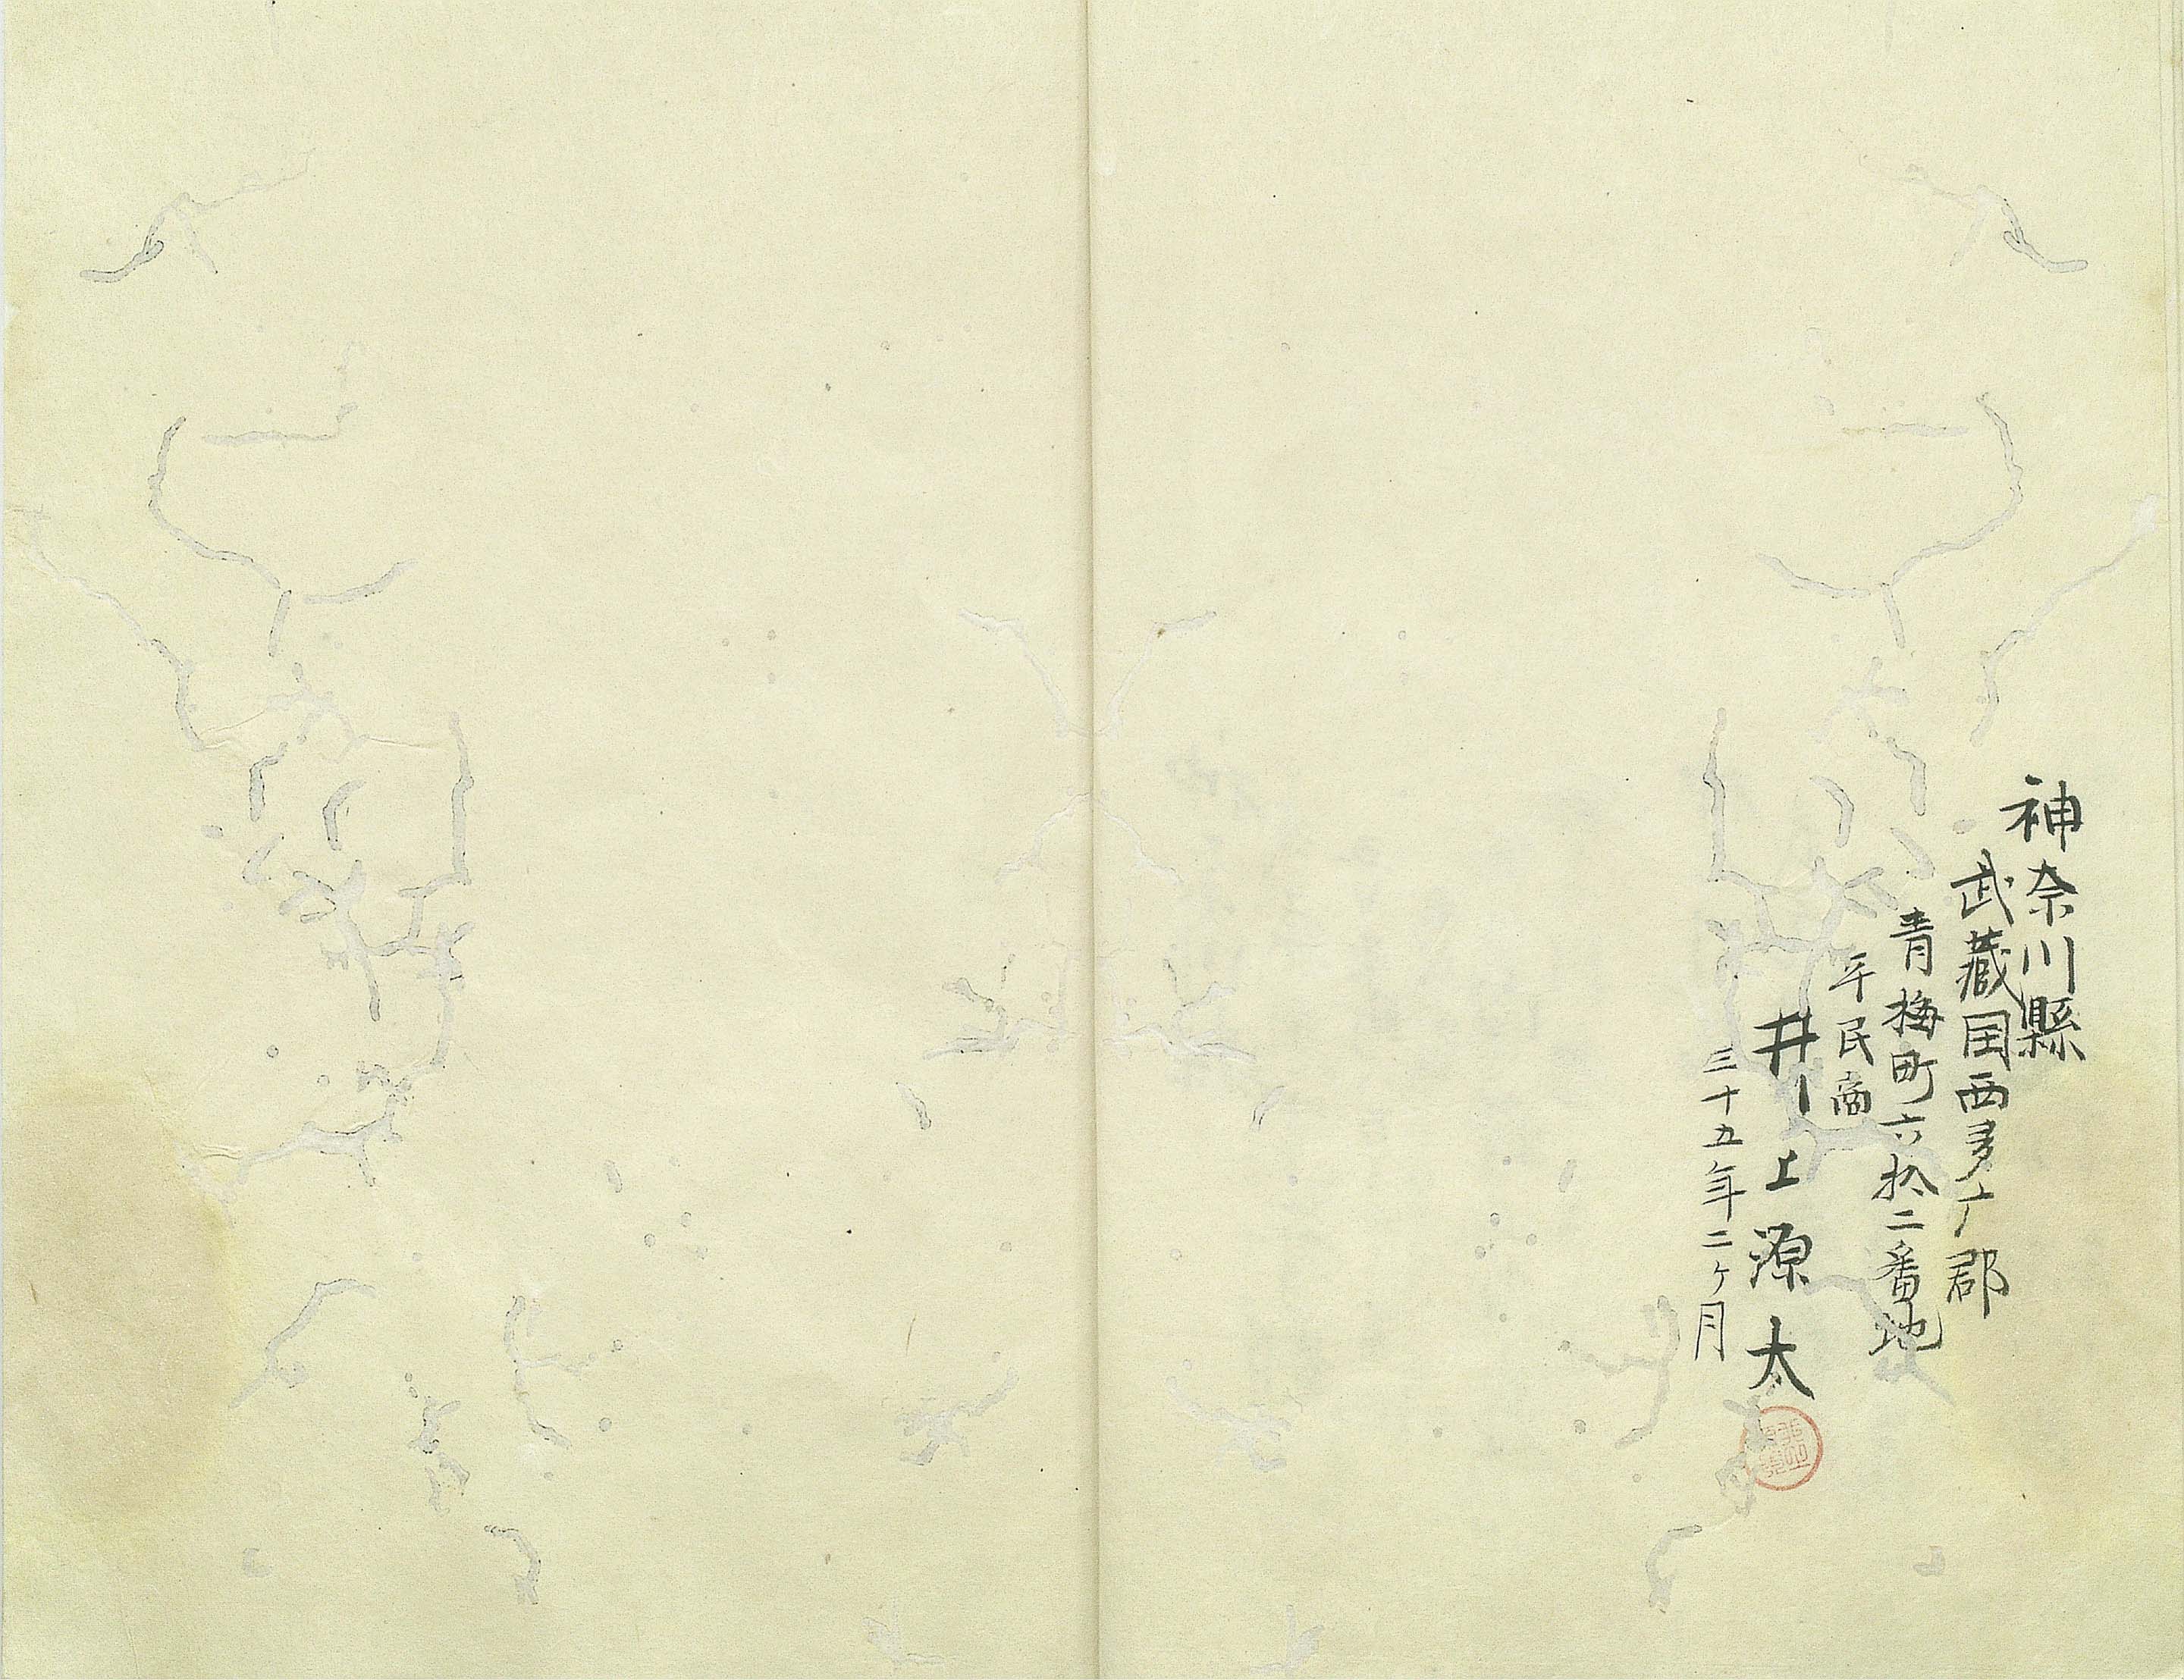 神奈川縣
武藏国西多广郡
青梅町六拾二番地
平民商
井上源太
三十五年二ヶ月